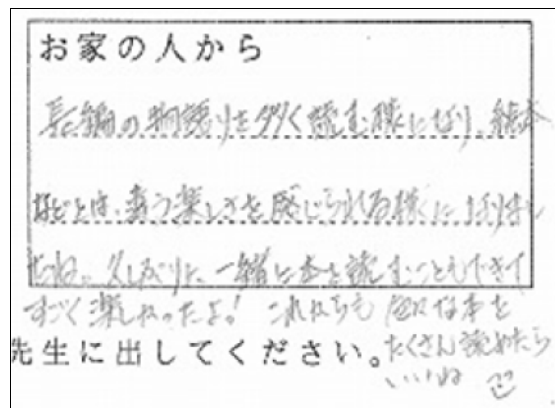 お家の人から
長編の物語りを多く読む様になり、絵本
などとは、違う楽しさを感じられる様になりまし
たね。久しぶりに、一緒に本を読むこともできて
すごく楽しかったよ! これからも 色々な本を
たくさん読めたら
いいね
先生に出してください。